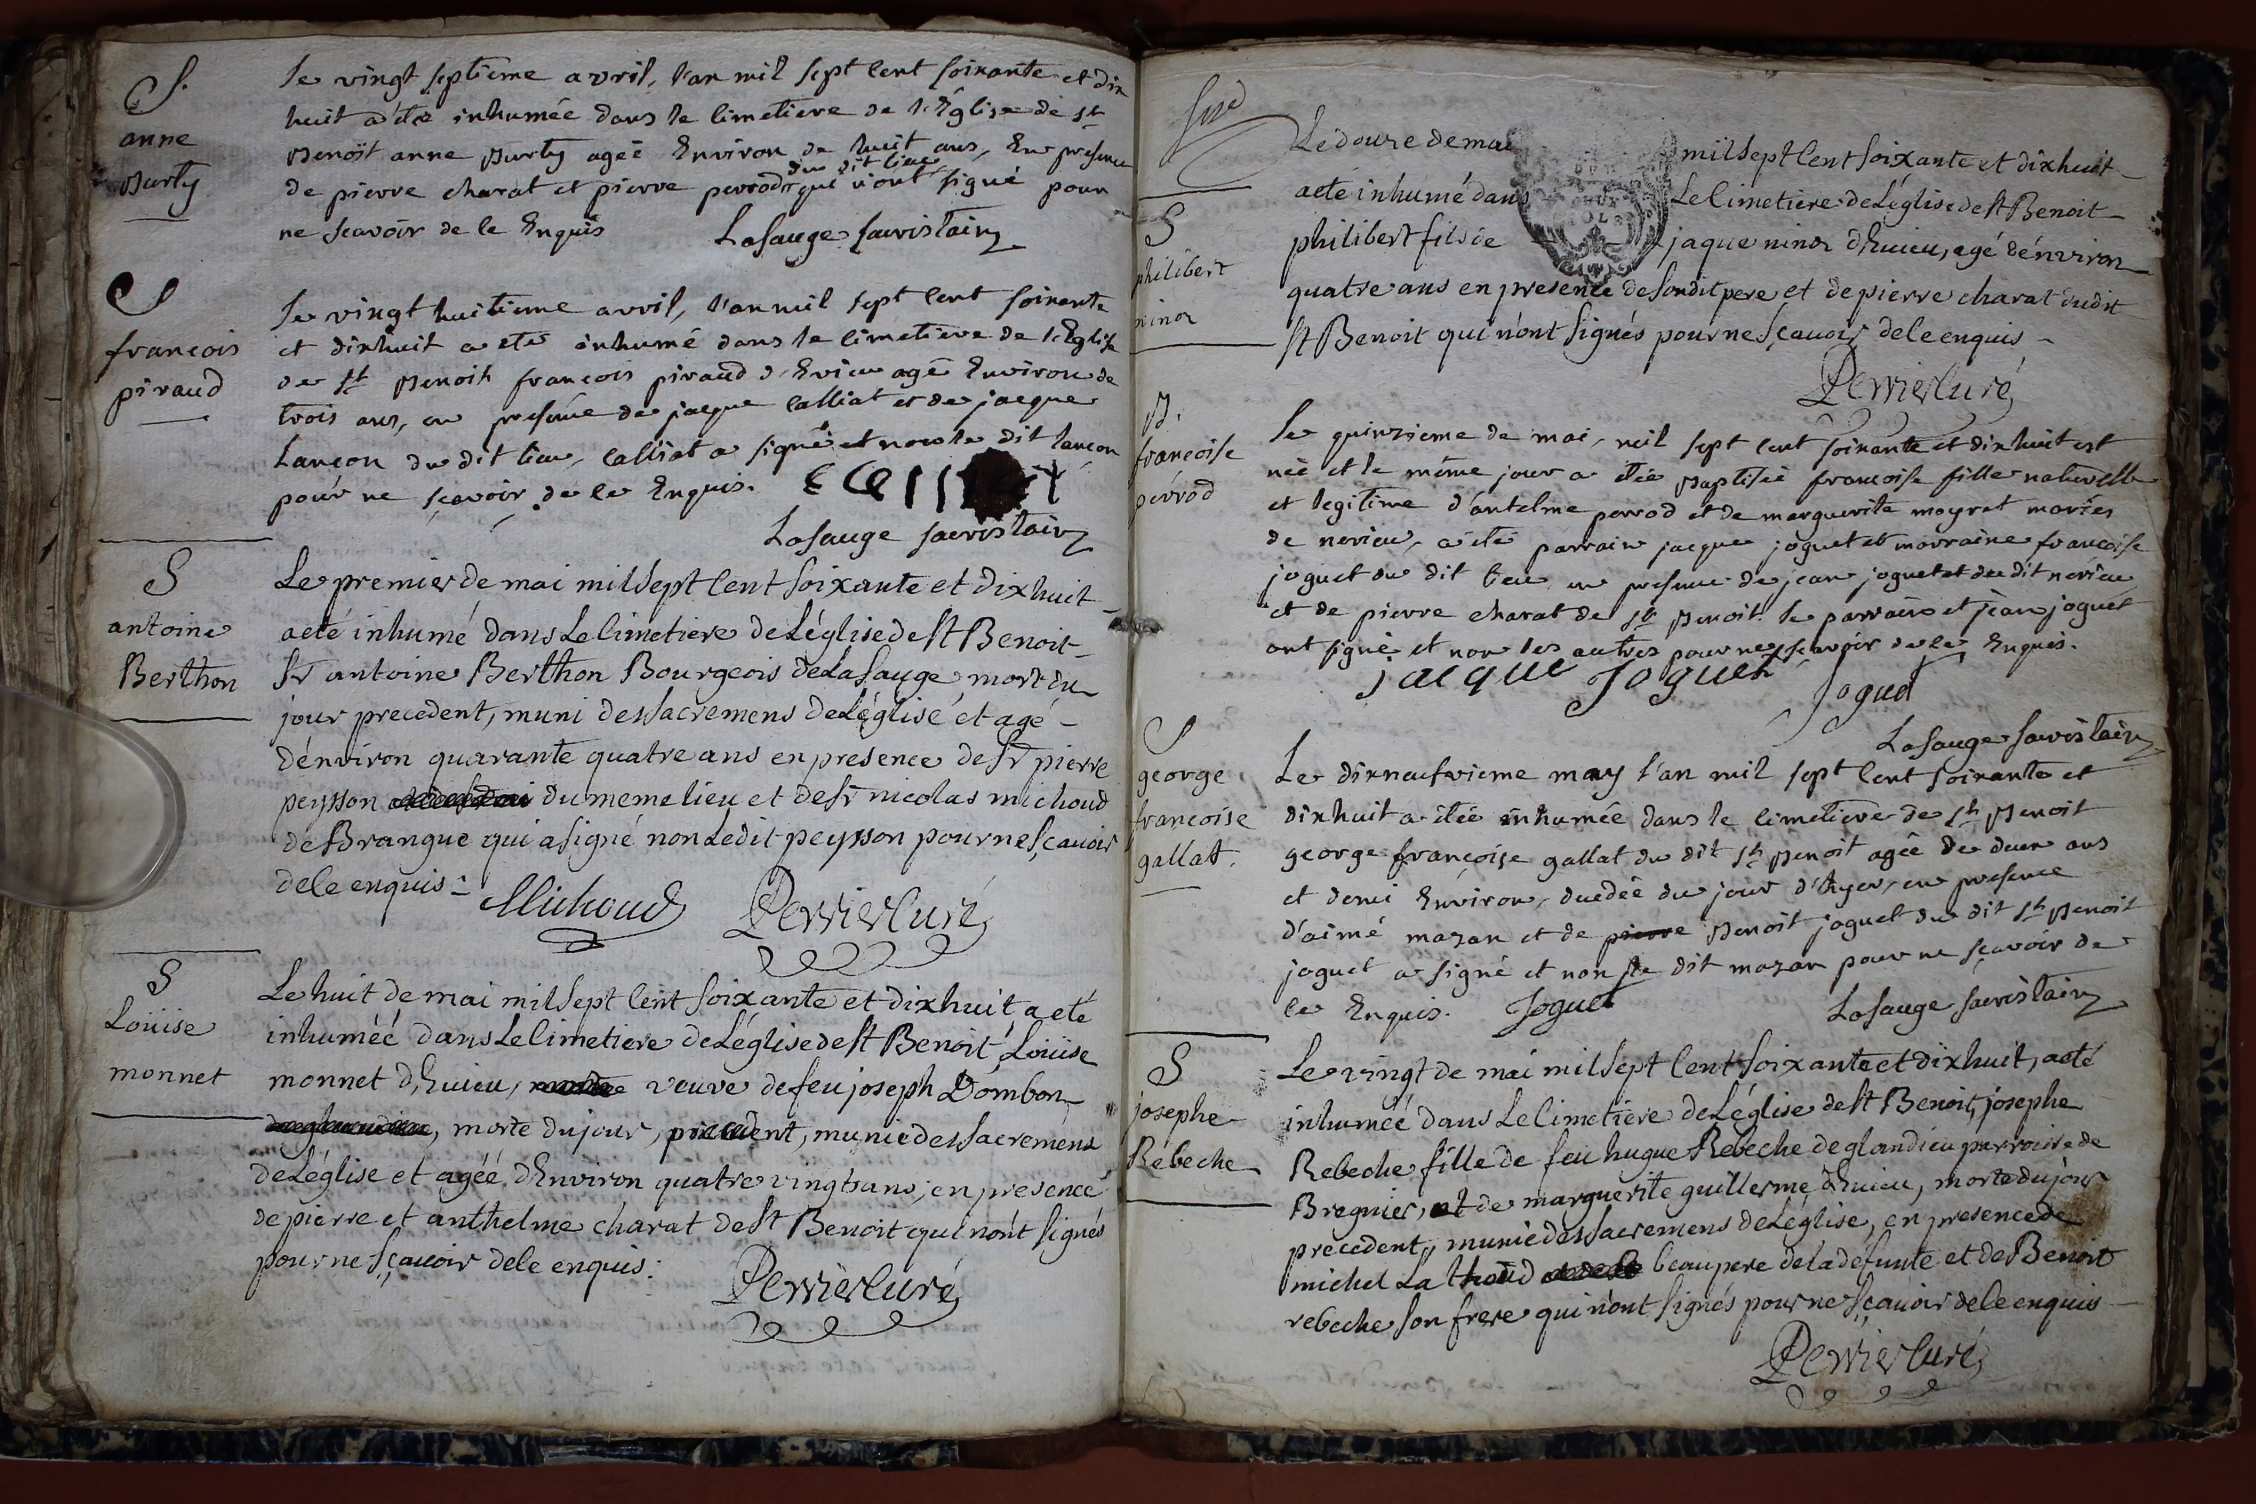 S.
anne
Burty
Le vingt septieme avril, l'an mil sept cent soixante et dix
huit a été inhumée dans le cimetiere de l'Église de st
Benoit anne Burty ageé Environ de huit ans, En presence
du dit lieu
de pierre charat et pierre perrod qui n'ont signé pour
ne scavoir de ce Enquis Lasauge sacristain
S
francois
piraud
Le vingt huitieme avril, l'an mil sept cent soixante
et dixhuit a eté inhumé dans le cimetiere de l'Eglise
de st Benoit francois piraud d'Evieu agé Environ de
trois ans, en presence de jacque calliat et de jacque
Lancon du dit lieu, calliat a signé et non le dit lancon
pour ne sçavoir de ce Enquis.
Lasauge sacristain
S
antoine
Berthon
Le premier de mai mil sept cent soixante et dixhuit
a eté inhumé dans Le cimetiere de Léglise de st Benoit
Sr antoine Berthon Bourgeois de La Sauge mort du
jour precedent, muni des sacremens de Léglise et agé
d'énviron quarante quatre ans en presence de sr pierre
peysson du meme lieu et de sr nicolas michoud
de Brangue qui a signé non Ledit peysson pour ne sçavoir
de ce enquis Michoud Perrier curé
S
Loüise
monnet
Le huit de mai mil sept cent soixante et dixhuit a eté
inhumée dans Le cimetiere de Léglise de st Benoit Loüise
monnet d'huieu, veuve de feu joseph Dombon
morte du jour, precedent, munie des sacremens
de Léglise et agée d'Environ quatre vingts ans, en presence
de pierre et anthelme charat de st Benoit qui n'ont signés
pour ne sçavoir de ce enquis.
Perrier curé
Le douze de mai mil sept cent soixante et dixhuit
a eté inhumé dans Le cimetiere de Léglise de st Benoit
S
philibert
ninoz
philibert fils de jaque ninoz d'huieu, agé d'énviron
quatre ans en presence de son dit pere et de pierre charat du dit
st Benoit qui n'ont signés pour ne sçavoir de ce enquis
Perrier curé
B.
francoise
perrod
Le quinzieme de mai, mil sept cent soixante et dixhuit est
née et le même jour a étée Baptisée francoise fille naturelle
et legitime d'antelme perrod et de marguerite moyret mariés
de nevieu, a été parrain jacque joguet et marraine francoise
joguet du dit lieu en presence de jean joguet et du dit nevieu
et de pierre charat de st Benoit. le parrain et jean joguet
ont signé et non les autres pour ne scavoir de ce Enquis.
jacque Joguet Joguet
Lasauge sacristain
S
george
francoise
gallat.
Le dixneufvieme may l'an mil sept cent soixante et
dixhuit a étée inhumée dans le cimetiere de st Benoit
george françoise gallat du dit st Benoit agée de deux ans
et demi Environ, decedée du jour d'hyer, en presence
d'aimé mazan et de pierre Benoit joguet du dit st Benoit
joguet a signé et non le dit mazan pour ne sçavoir de
ce Enquis. Joguet Lasauge sacristain
S
josephe
Rebeche
Le vingt de mai mil sept cent soixante et dixhuit, a eté
inhumée dans Le cimetiere de Léglise de st Benoit, josephe
Rebeche fille de feu hugue Rebeche de glandieu parroisse de
Bregnier, et de marguerite guillerme d'huieu, morte du jour
precedent, munie des sacremens de Léglise, en presence de
michel Lathoud beaupere de la defunte et de Benoit
rebeche son frere qui n'ont signés pour ne sçavoir de ce enquis
Perrier curé